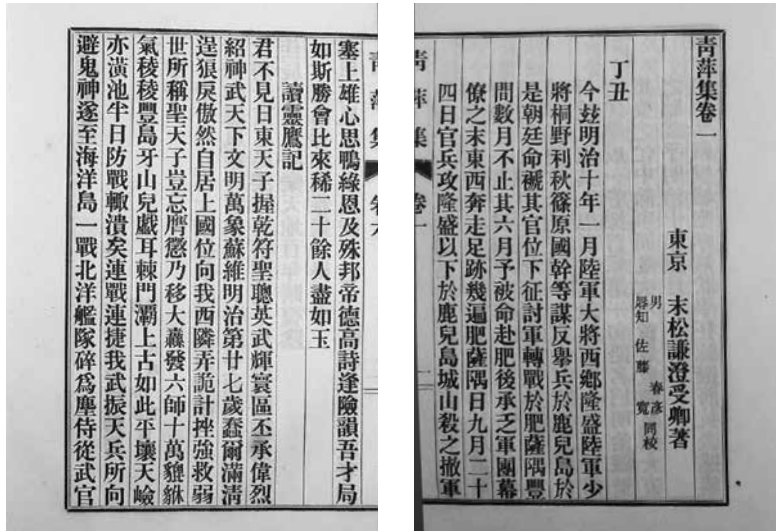 靑萍集卷一
東京 末松謙澄受卿著
男 春彥
辱知 佐藤 寬 同校
丁丑
今玆明治十年一月陸軍大將西鄕隆盛陸軍少
將桐野利秋篠原國幹等謀反擧兵於鹿兒島於
是朝廷命褫其官位下征討軍轉戰於肥薩隅豐
間數月不止其六月予被命赴肥後承乏軍團幕
僚之末東西奔走足跡幾遍肥薩隅日九月二十
四日官兵攻隆盛以下於鹿兒島城山殺之撤軍
靑萍集 卷一
靑萍集 卷六
塞上雄心思鴨綠恩及殊邦帝德高詩逢險韻吾才局
如斯勝會比來稀二十餘人盡如玉
讀靈鷹記
君不見日東天子握乾符聖聰英武輝寰區丕承偉烈
紹神武天下文明萬象蘇維明治第廿七歲蠢爾滿淸
逞狠戾傲然自居上國位向我西隣弄詭計挫强救弱
世所稱聖天子豈忘膺懲乃移大纛發六師十萬貔貅
氣稜稜豐島牙山兒戲耳棘門灞上古如此平壤天嶮
亦潢池半日防戰輙潰矣連戰連捷我武振天兵所向
避鬼神遂至海洋島一戰北洋艦隊碎爲塵侍從武官